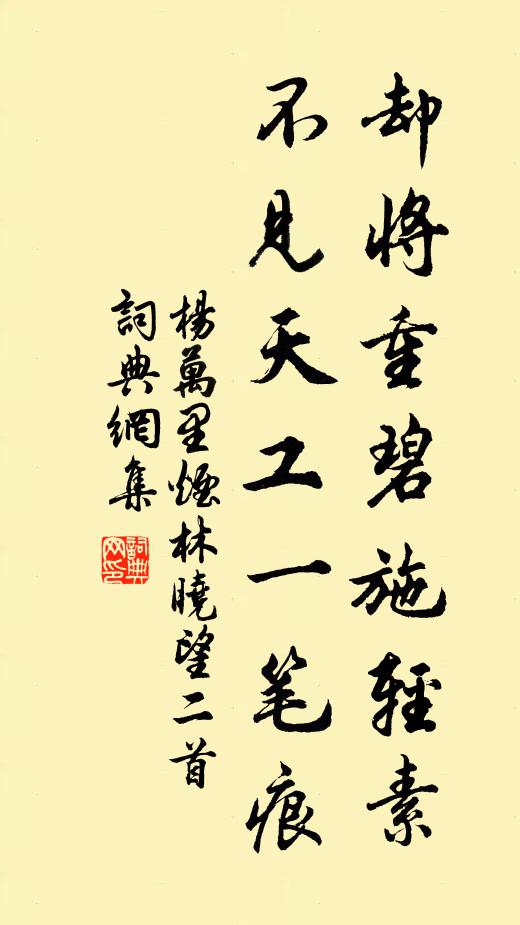 却将重碧施輕素
不見天工一笔痕
楊萬里煙林曉望二首
詞典網集
詞典
网印